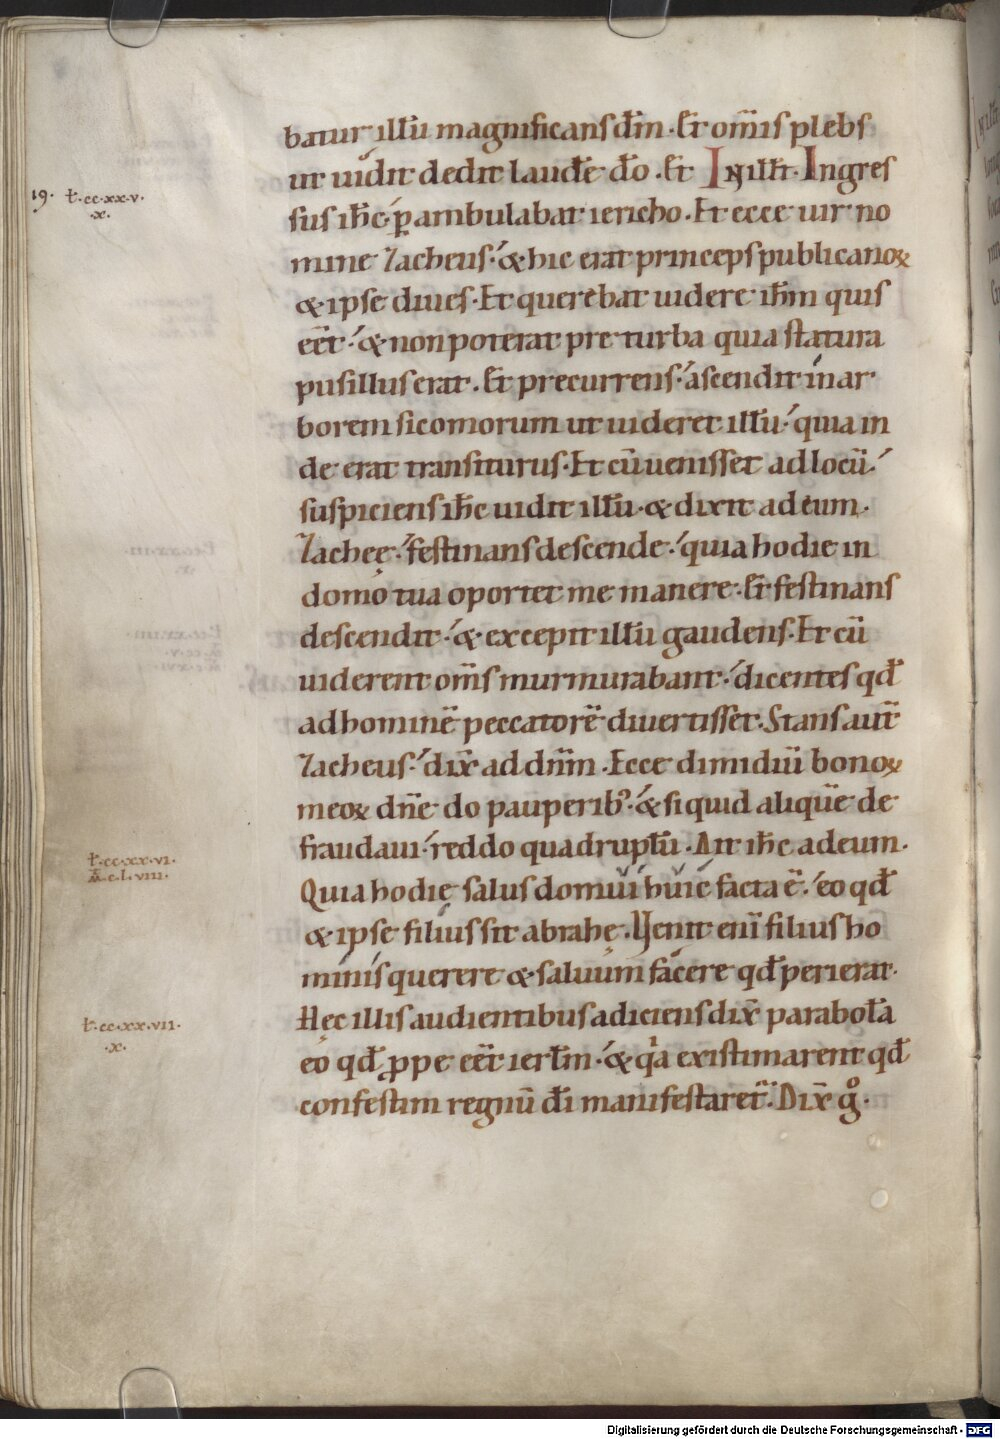 batur illu̅ magnificans dm̅. Et om̅is plebs
ut uidit dedit laude̅ do̅. Et In ill̅t. Ingres
19. l̅. cc. xx. v.
.x.
sus ih̅c ꝑambulabat iericho. Et ecce uir no
mine Zacheus. & hic erat princeps publicanoꝝ
& ipse diues. Et querebat uidere ih̅m quis
ee̅t. & non poterat pre turba quia statura
pusillus erat. Et precurrens. ascendit in ar
borem sicomorum ut uideret illu̅. quia in
de erat transiturus. Et cu̅ uenisset ad locu̅.
suspiciens ih̅c uidit illu̅. & dixit ad eum.
Zachęe. festinans descende. quia hodie in
domo tua oportet me manere. Et festinans
descendit. & excepit illu̅ gaudens. Et cu̅
uiderent om̅s murmurabant. dicentes qd̅
ad homine̅ peccatore̅ diuertisset. Stans aut̅
Zacheus. dix̅ ad dn̅m. Ecce dimidiu̅ bonoꝝ
meoꝝ dn̅e do pauperib'. & si quid alique̅ de
fraudaui. reddo quadruplu̅. Ait ih̅c ad eum.
l̅. cc. xx. vi.
m̅. c. l. viii.
Quia hodie salus domui huic facta e̅. eo qd̅
& ipse filius sit abrahę. Uenit eni̅ filius ho
minis querere & saluum facere qd̅ perierat.
Hęc illis audientibus adiciens dix̅ parabola̅
l̅. cc. xx. vii.
.x.
eo qd̅ ꝓpe ee̅t ierl̅m. & qa existimarent qd̅
confestim regnu̅ di̅ manifestaret̅. Dix̅ go.
Digitalisierung gefördert durch die Deutsche Forschungsgemeinschaft - DFG